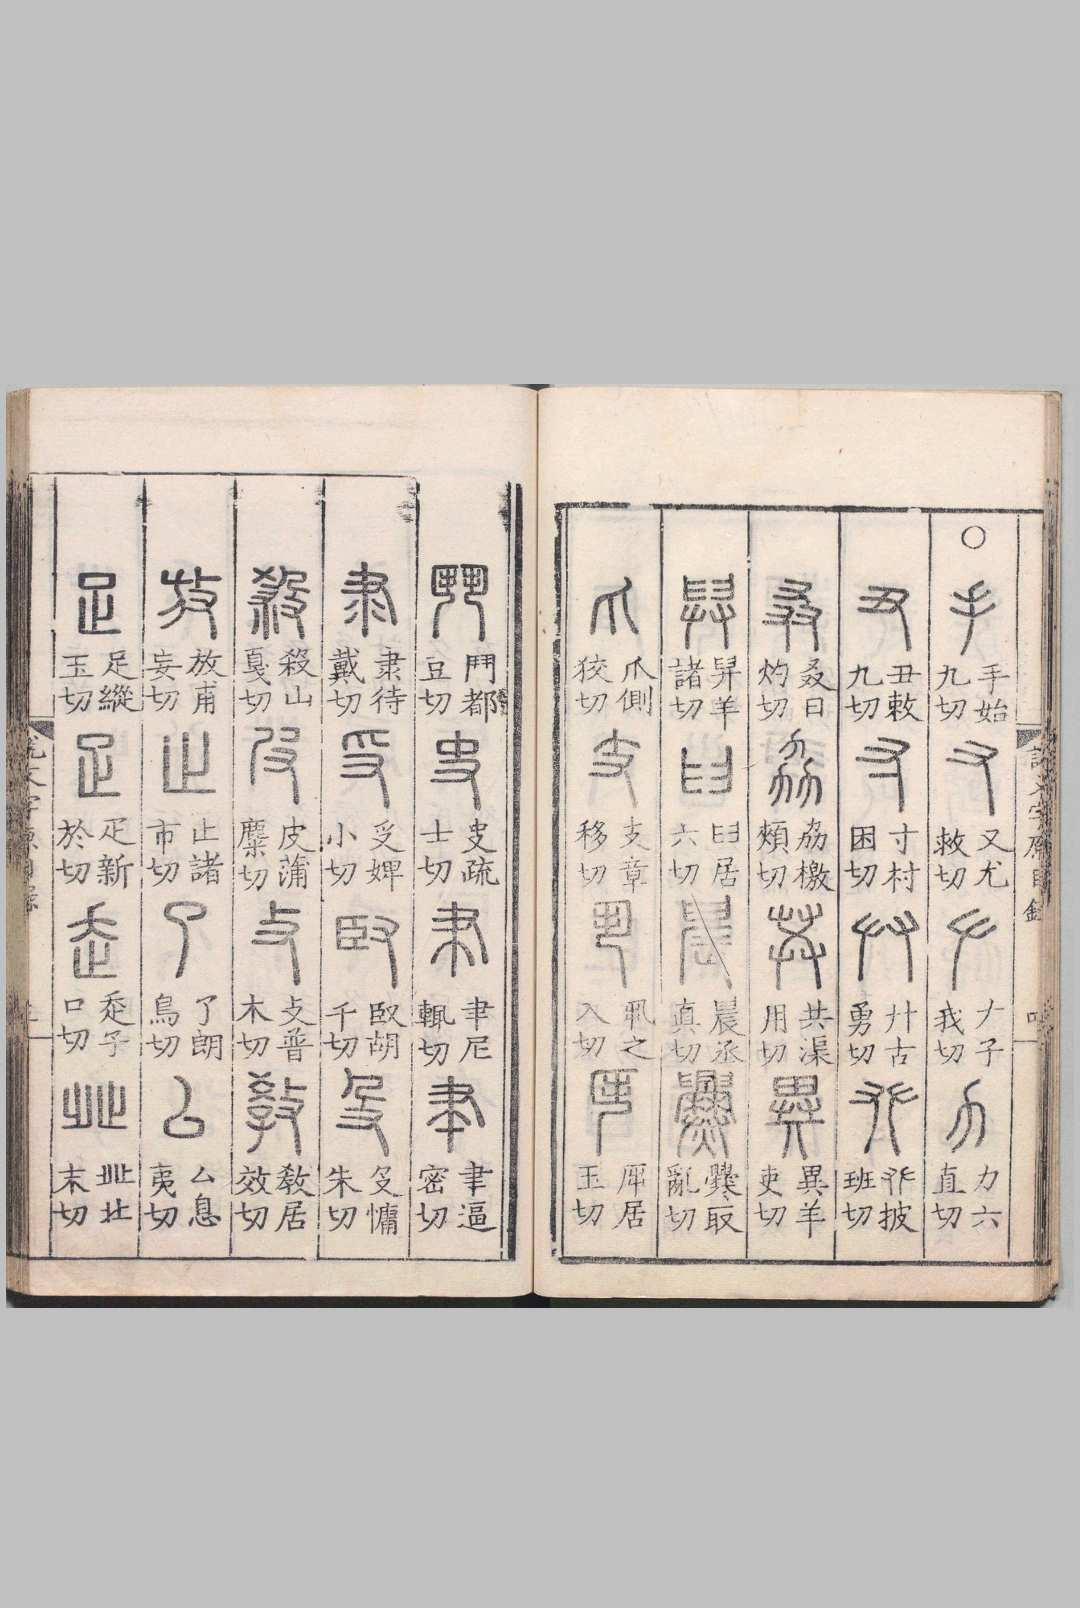 說文字原目錄
四
○手手始九切又又尤救切𠂇𠂇子我切力力六直切
丑丑敕九切寸寸村困切廾廾古勇切𠬜𠬜披班切
叒叒日灼切劦劦檄頰切共共渠用切異異羊吏切
舁舁羊諸切𦥑𦥑居六切晨晨丞真切爨爨取亂切
爪爪側狡切支支章移切丮丮之入切居玉切
鬥鬥都豆切史史疏士切𦘒𦘒尼輒切聿聿逼密切
隶隶待戴切𠬪𠬪婢小切臤臤胡千切殳殳慵朱切
殺殺山戛切皮皮蒲麋切攴攴普木切教教居效切
放放甫妄切止止諸市切了了朗鳥切厶厶息夷切
足足縱玉切疋疋新於切走走子口切癶癶北末切
說文字原目錄